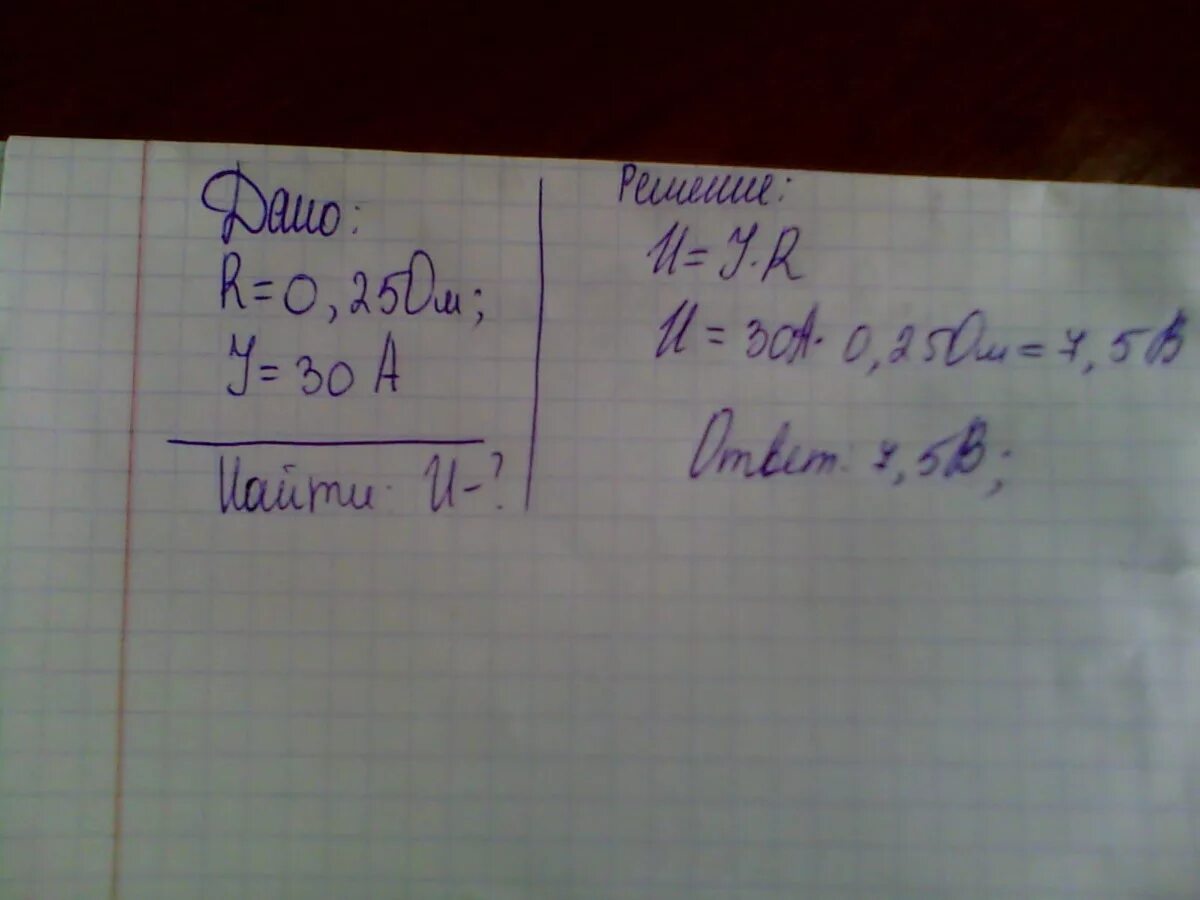 Дано:
R=0,25Ом;
I=30 А
Найти: U-?
Решение:
U=I·R
U=30А·0,25Ом=7,5В
Ответ: 7,5В;